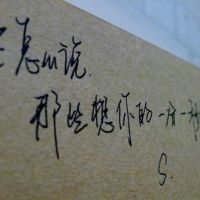 怎么说.
那些想你的一分一秒
S.